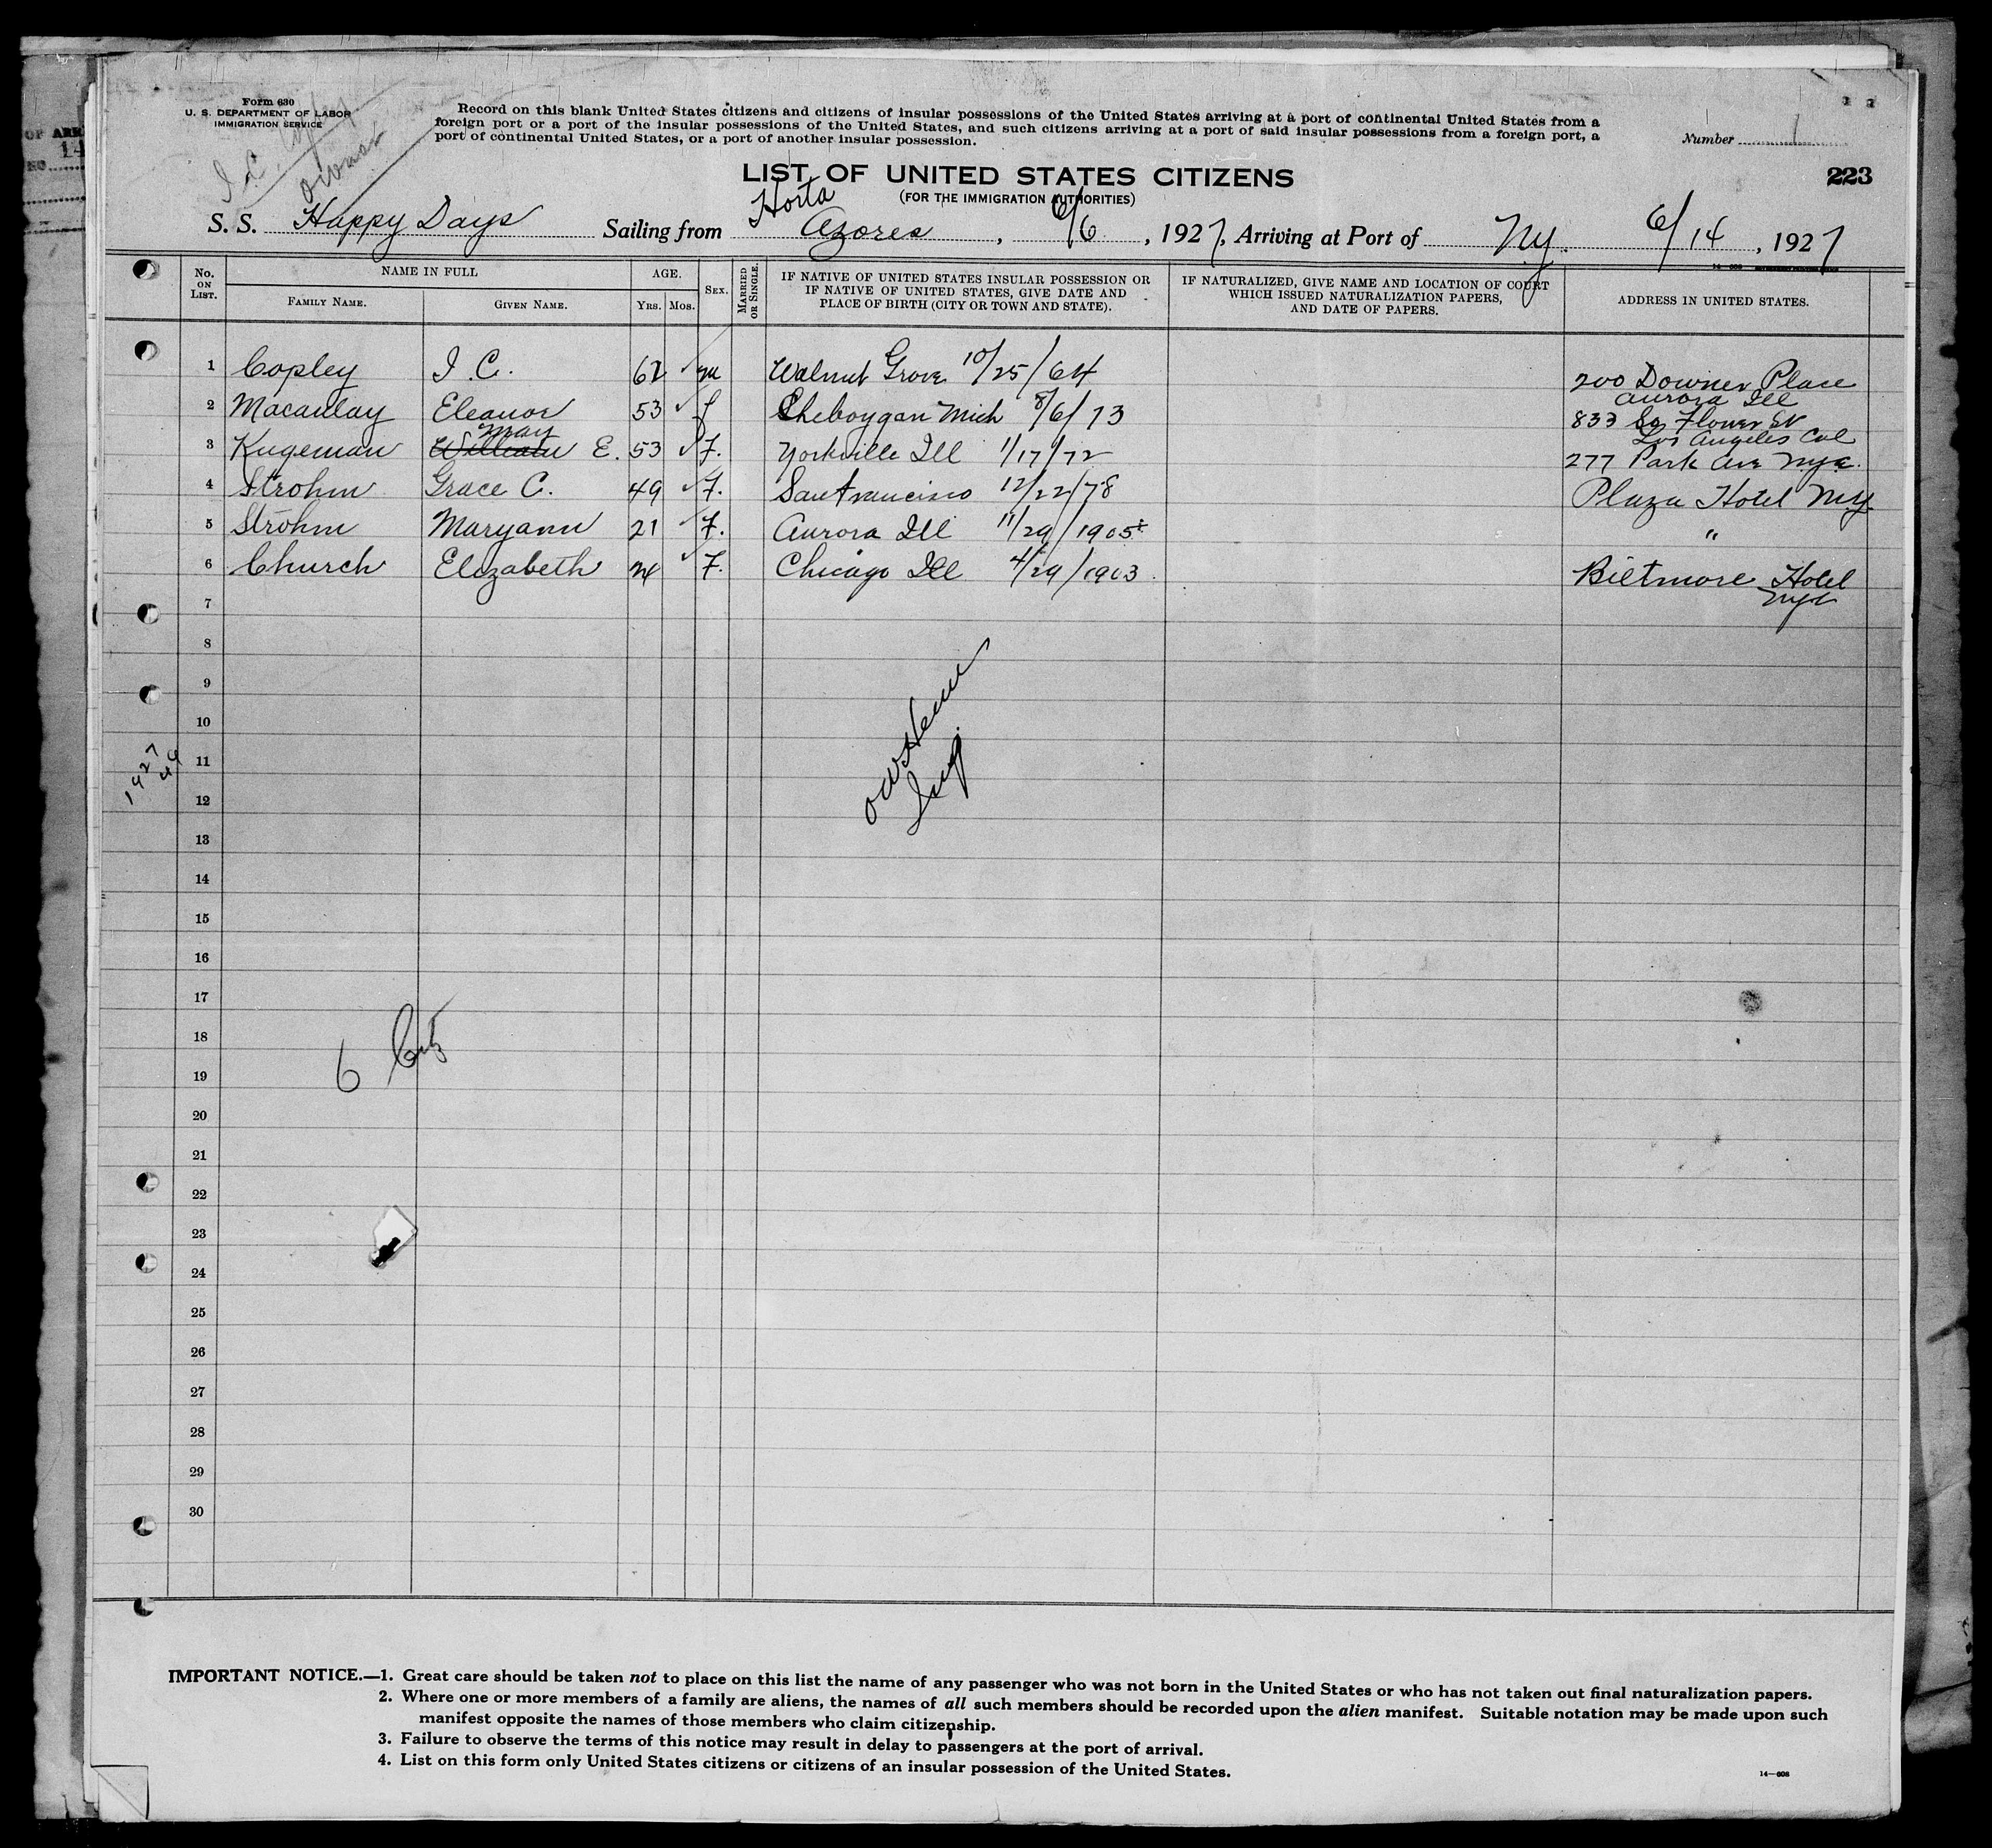 OF ARR
NO. 14
Form 630
U. S. DEPARTMENT OF LABOR
IMMIGRATION SERVICE
I. C.
owner
Record on this blank United States citizens and citizens of insular possessions of the United States arriving at a port of continental United States from a
foreign port or a port of the insular possessions of the United States, and such citizens arriving at a port of said insular possessions from a foreign port, a
port of continental United States, or a port of another insular possession.
Number 1
LIST OF UNITED STATES CITIZENS
(FOR THE IMMIGRATION AUTHORITIES)
223
Horta
S. S. Happy Days Sailing from Azores, 6/6, 1927, Arriving at Port of N.y. 6/14, 1927
No. ON LIST.
NAME IN FULL
FAMILY NAME. GIVEN NAME.
AGE.
YRS. MOS.
SEX.
MARRIED OR SINGLE.
IF NATIVE OF UNITED STATES INSULAR POSSESSION OR
IF NATIVE OF UNITED STATES, GIVE DATE AND
PLACE OF BIRTH (CITY OR TOWN AND STATE).
IF NATURALIZED, GIVE NAME AND LOCATION OF COURT
WHICH ISSUED NATURALIZATION PAPERS,
AND DATE OF PAPERS.
ADDRESS IN UNITED STATES.
1 Copley I. C. 62 ✓ m Walnut Grove 10/25/64 200 Downer Place
Aurora Ill
2 Macaulay Eleanor 53 ✓ f Cheboygan Mich 8/6/73 833 So Flower St
Los Angeles Cal
May
3 Kugeman William E. 53 ✓ F. Yorkville Ill 1/17/72 277 Park Ave nyc.
4 Strohm Grace C. 49 ✓ F. San Francisco 12/22/78 Plaza Hotel N.Y.
5 Strohm Maryann 21 ✓ F. Aurora Ill 11/29/1905 "
6 Church Elizabeth 24 ✓ F. Chicago Ill 4/29/1903 Biltmore Hotel
nyc
7
8
9
10
11
12
13
14
15
16
17
18
19
20
21
22
23
24
25
26
27
28
29
30
1927
Insp
6 Cit
IMPORTANT NOTICE.—1. Great care should be taken not to place on this list the name of any passenger who was not born in the United States or who has not taken out final naturalization papers.
2. Where one or more members of a family are aliens, the names of all such members should be recorded upon the alien manifest. Suitable notation may be made upon such
manifest opposite the names of those members who claim citizenship.
3. Failure to observe the terms of this notice may result in delay to passengers at the port of arrival.
4. List on this form only United States citizens or citizens of an insular possession of the United States.
14—608